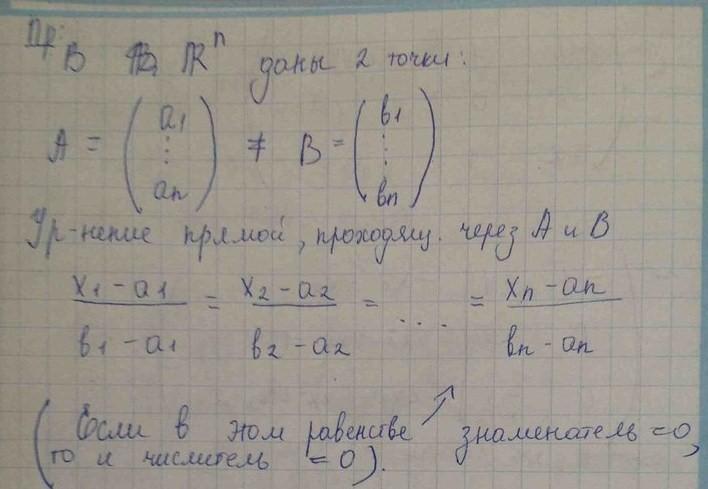 Пр:
В ℝⁿ даны 2 точки:
A = (a₁ ⋮ aₙ) ≠ B = (в₁ ⋮ вₙ)
Ур-нение прямой, проходящ. через A и B
(x₁ - a₁)/(в₁ - a₁) = (x₂ - a₂)/(в₂ - a₂) = ... = (xₙ - aₙ)/(вₙ - aₙ)
(Если в этом равенстве ↗ знаменатель = 0,
то и числитель = 0).